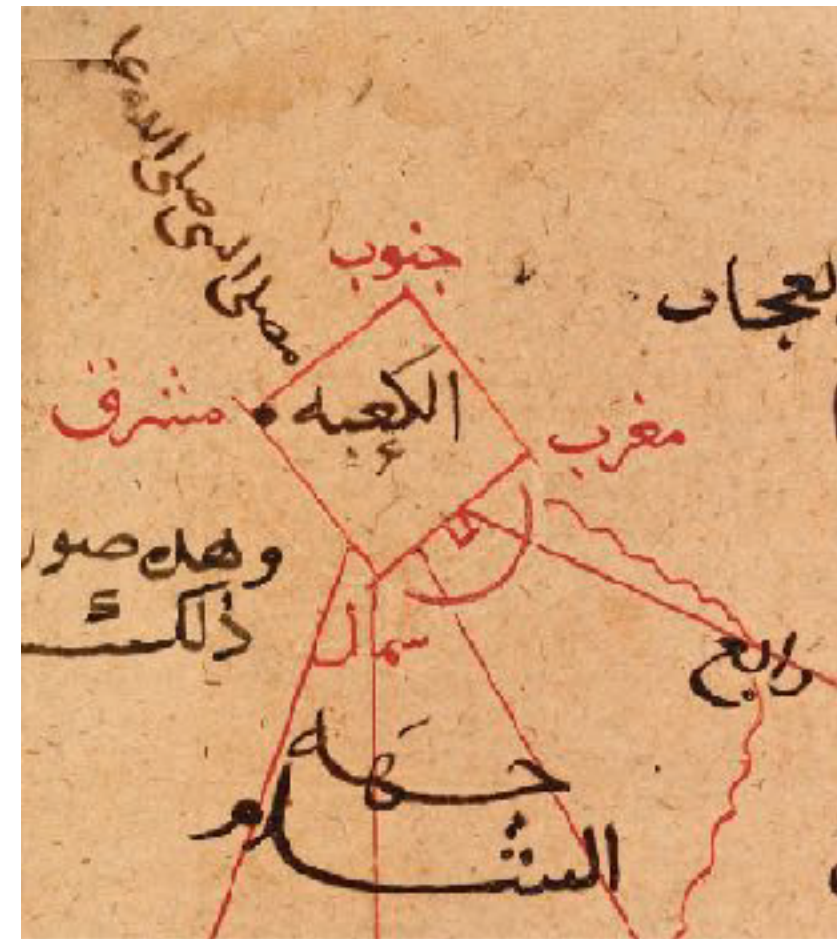 مصلى النبي صلى الله عل
جنوب
العجاں
الكعبه
مشرق
مغرب
وهذه صور
ذلك
شمال
رابغ
جهة
الشام